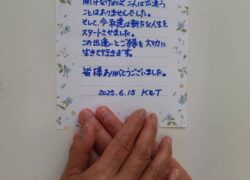 ことはありませんでした。
そして今永遠は新たな人生を
スタートさせました。
この出逢いとご縁を大切に
生きて行きます。
皆様ありがとうございました。
2025.6.15 K&T